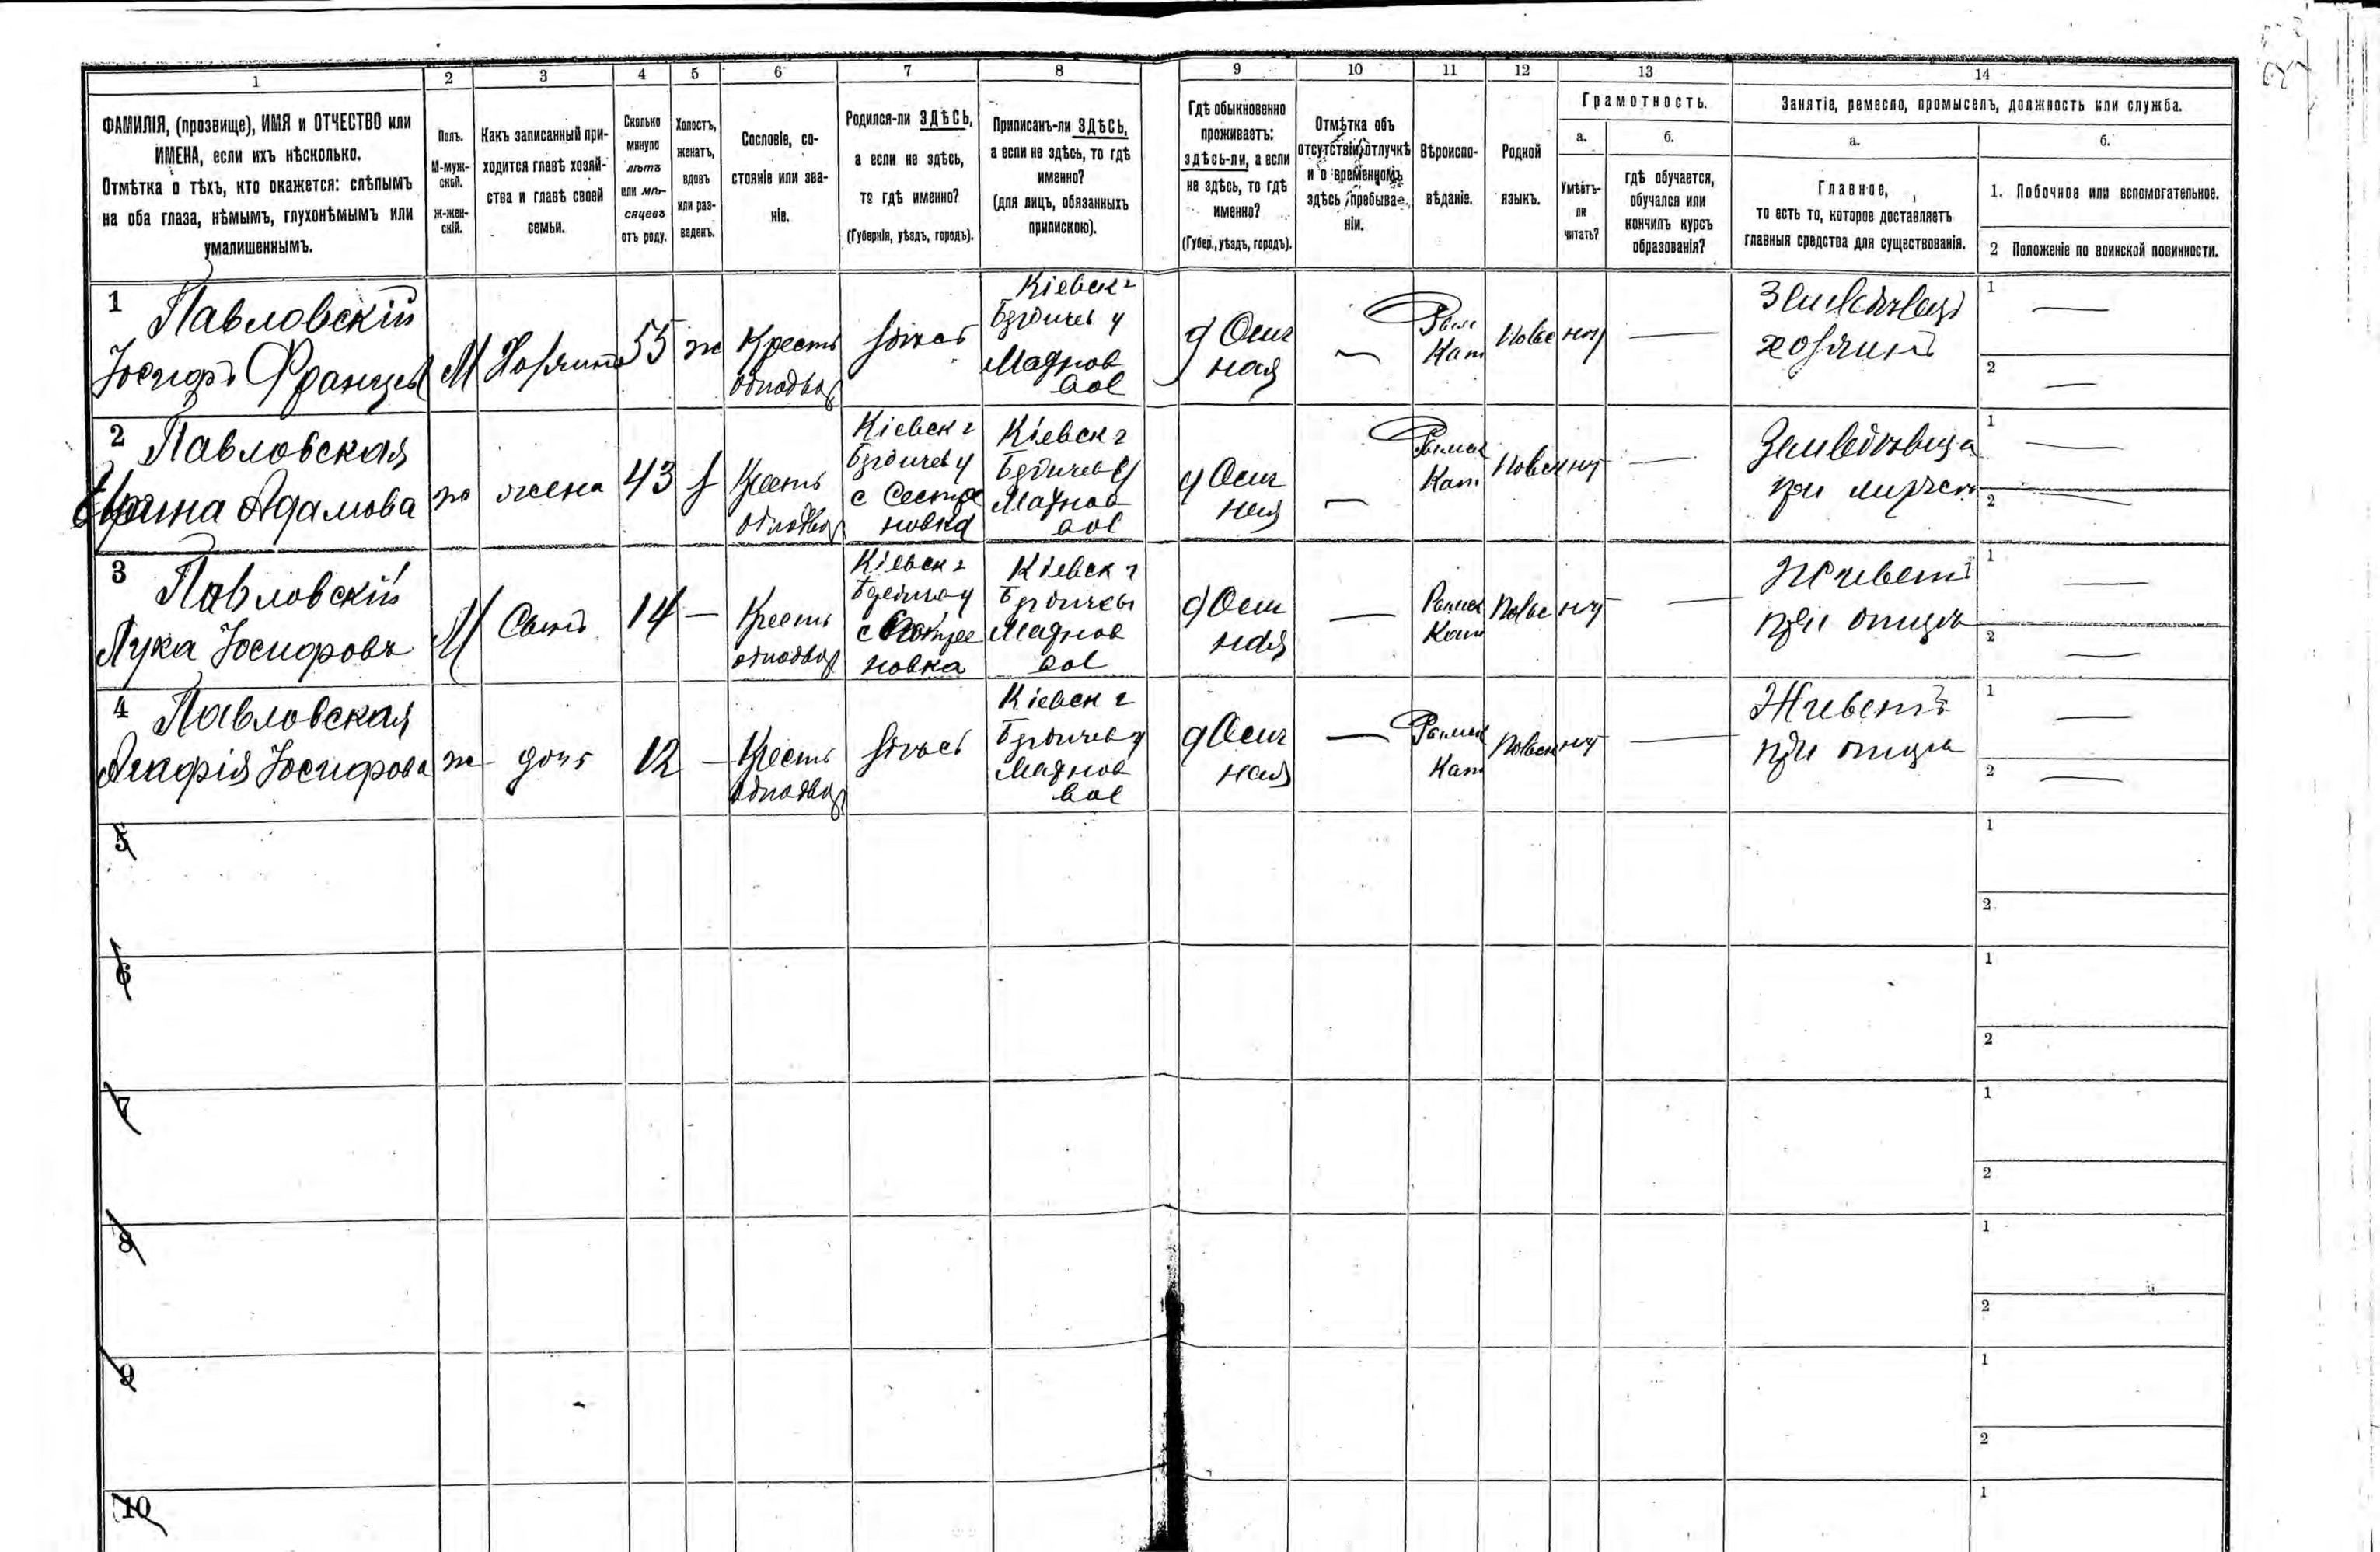 1 2 3 4 5 6 7 8 9 10 11 12 13 14
ФАМИЛІЯ, (прозвище), ИМЯ и ОТЧЕСТВО или
ИМЕНА, если ихъ нѣсколько.
Отмѣтка о тѣхъ, кто окажется: слѣпымъ
на оба глаза, нѣмымъ, глухонѣмымъ или
умалишеннымъ.
Полъ.
М-муж-
ской.
Ж-жен-
скій.
Какъ записанный при-
ходится главѣ хозяй-
ства и главѣ своей
семьи.
Сколько
минуло
лѣтъ
или мѣ-
сяцевъ
отъ роду.
Холостъ,
женатъ,
вдовъ
или раз-
веденъ.
Сословіе, со-
стояніе или зва-
ніе.
Родился-ли ЗДѢСЬ,
а если не здѣсь,
то гдѣ именно?
(Губернія, уѣздъ, городъ).
Приписанъ-ли ЗДѢСЬ,
а если не здѣсь, то гдѣ
именно?
(для лицъ, обязанныхъ
припискою).
Гдѣ обыкновенно
проживаетъ:
здѣсь-ли, а если
не здѣсь, то гдѣ
именно?
(Губер., уѣздъ, городъ).
Отмѣтка объ
отсутствіи, отлучкѣ
и о временномъ
здѣсь пребыва-
ніи.
Вѣроиспо-
вѣданіе.
Родной
языкъ.
Грамотность.
а.
Умѣетъ-
ли
читать?
б.
гдѣ обучается,
обучался или
кончилъ курсъ
образованія?
Занятіе, ремесло, промыселъ, должность или служба.
а.
Главное,
то есть то, которое доставляетъ
главныя средства для существованія.
б.
1. Побочное или вспомогательное.
2 Положеніе по воинской повинности.
1 Павловскій
Іосифъ Францев
М
Хозяинъ
55
ж
Крестъ
однодвор
здѣсь
Кіевск г
Бердичев у
Махнов
вол
Рим
Кат
Польс
хозяинъ
1 —
2 —
2 Павловская
Адамова
ж
жена
43
Крестъ
однодвор
Кіевск г
Бердичев у
с Сестре
новка
Кіевск г
Бердичев у
Махнов
вол
—
Римск
Кат
Польск
—
при мужѣ
1 —
2 —
3 Павловскій
Лука Іосифовъ
М
Сынъ
14
—
Крестъ
однодвор
Кіевск г
Бердичев у
с Сестре
новка
Кіевск г
Бердичев
Махнов
вол
—
Римск
Кат
Польс
—
Живетъ
при отцѣ
1 —
2 —
4 Павловская
Агафія Іосифова
ж
дочь
12
—
Крестъ
однодвор
здѣсь
Кіевск г
Бердичев у
Махнов
вол
—
Римск
Кат
Польск
—
Живетъ
при отцѣ
1 —
2 —
5
1
2
6
1
2
7
1
2
8
1
2
9
1
2
10
1